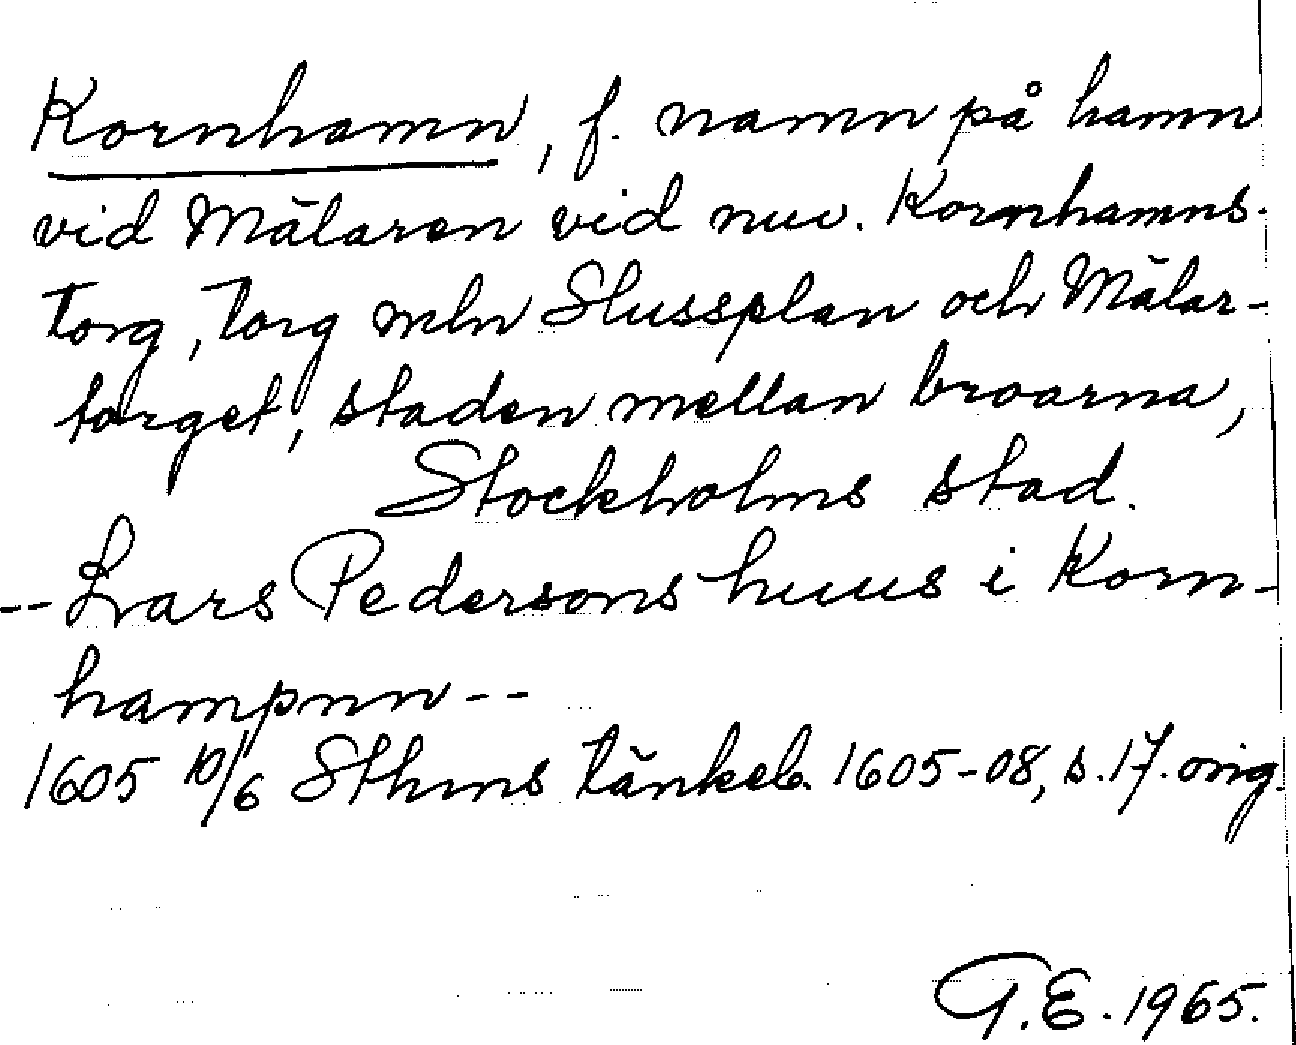 Kornhamn, f. namn på hamn
vid Mälaren vid nuv. Kornhamns-
torg, torg mln Slussplan och Mälar-
torget, staden mellan broarna,
Stockholms stad.
-- Lars Pedersons huus i Korn-
hampnn --
1605 10/6 Sthms tänkeb. 1605-08, s. 17. orig.
G.E. 1965.